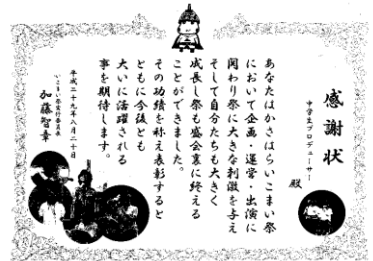 感謝状
中学生プロデューサー
殿
あなたはかさはらいこまい祭
において企画・運営・出演に
関わり祭に大きな刺激を与え
そして自分たちも大きく
成長し祭も盛会裏に終える
ことができました。
その功績を称え表彰すると
ともに今後とも
大いに活躍される
事を期待します。
平成二十九年八月二十日
いこまい祭実行委員長
加藤智章